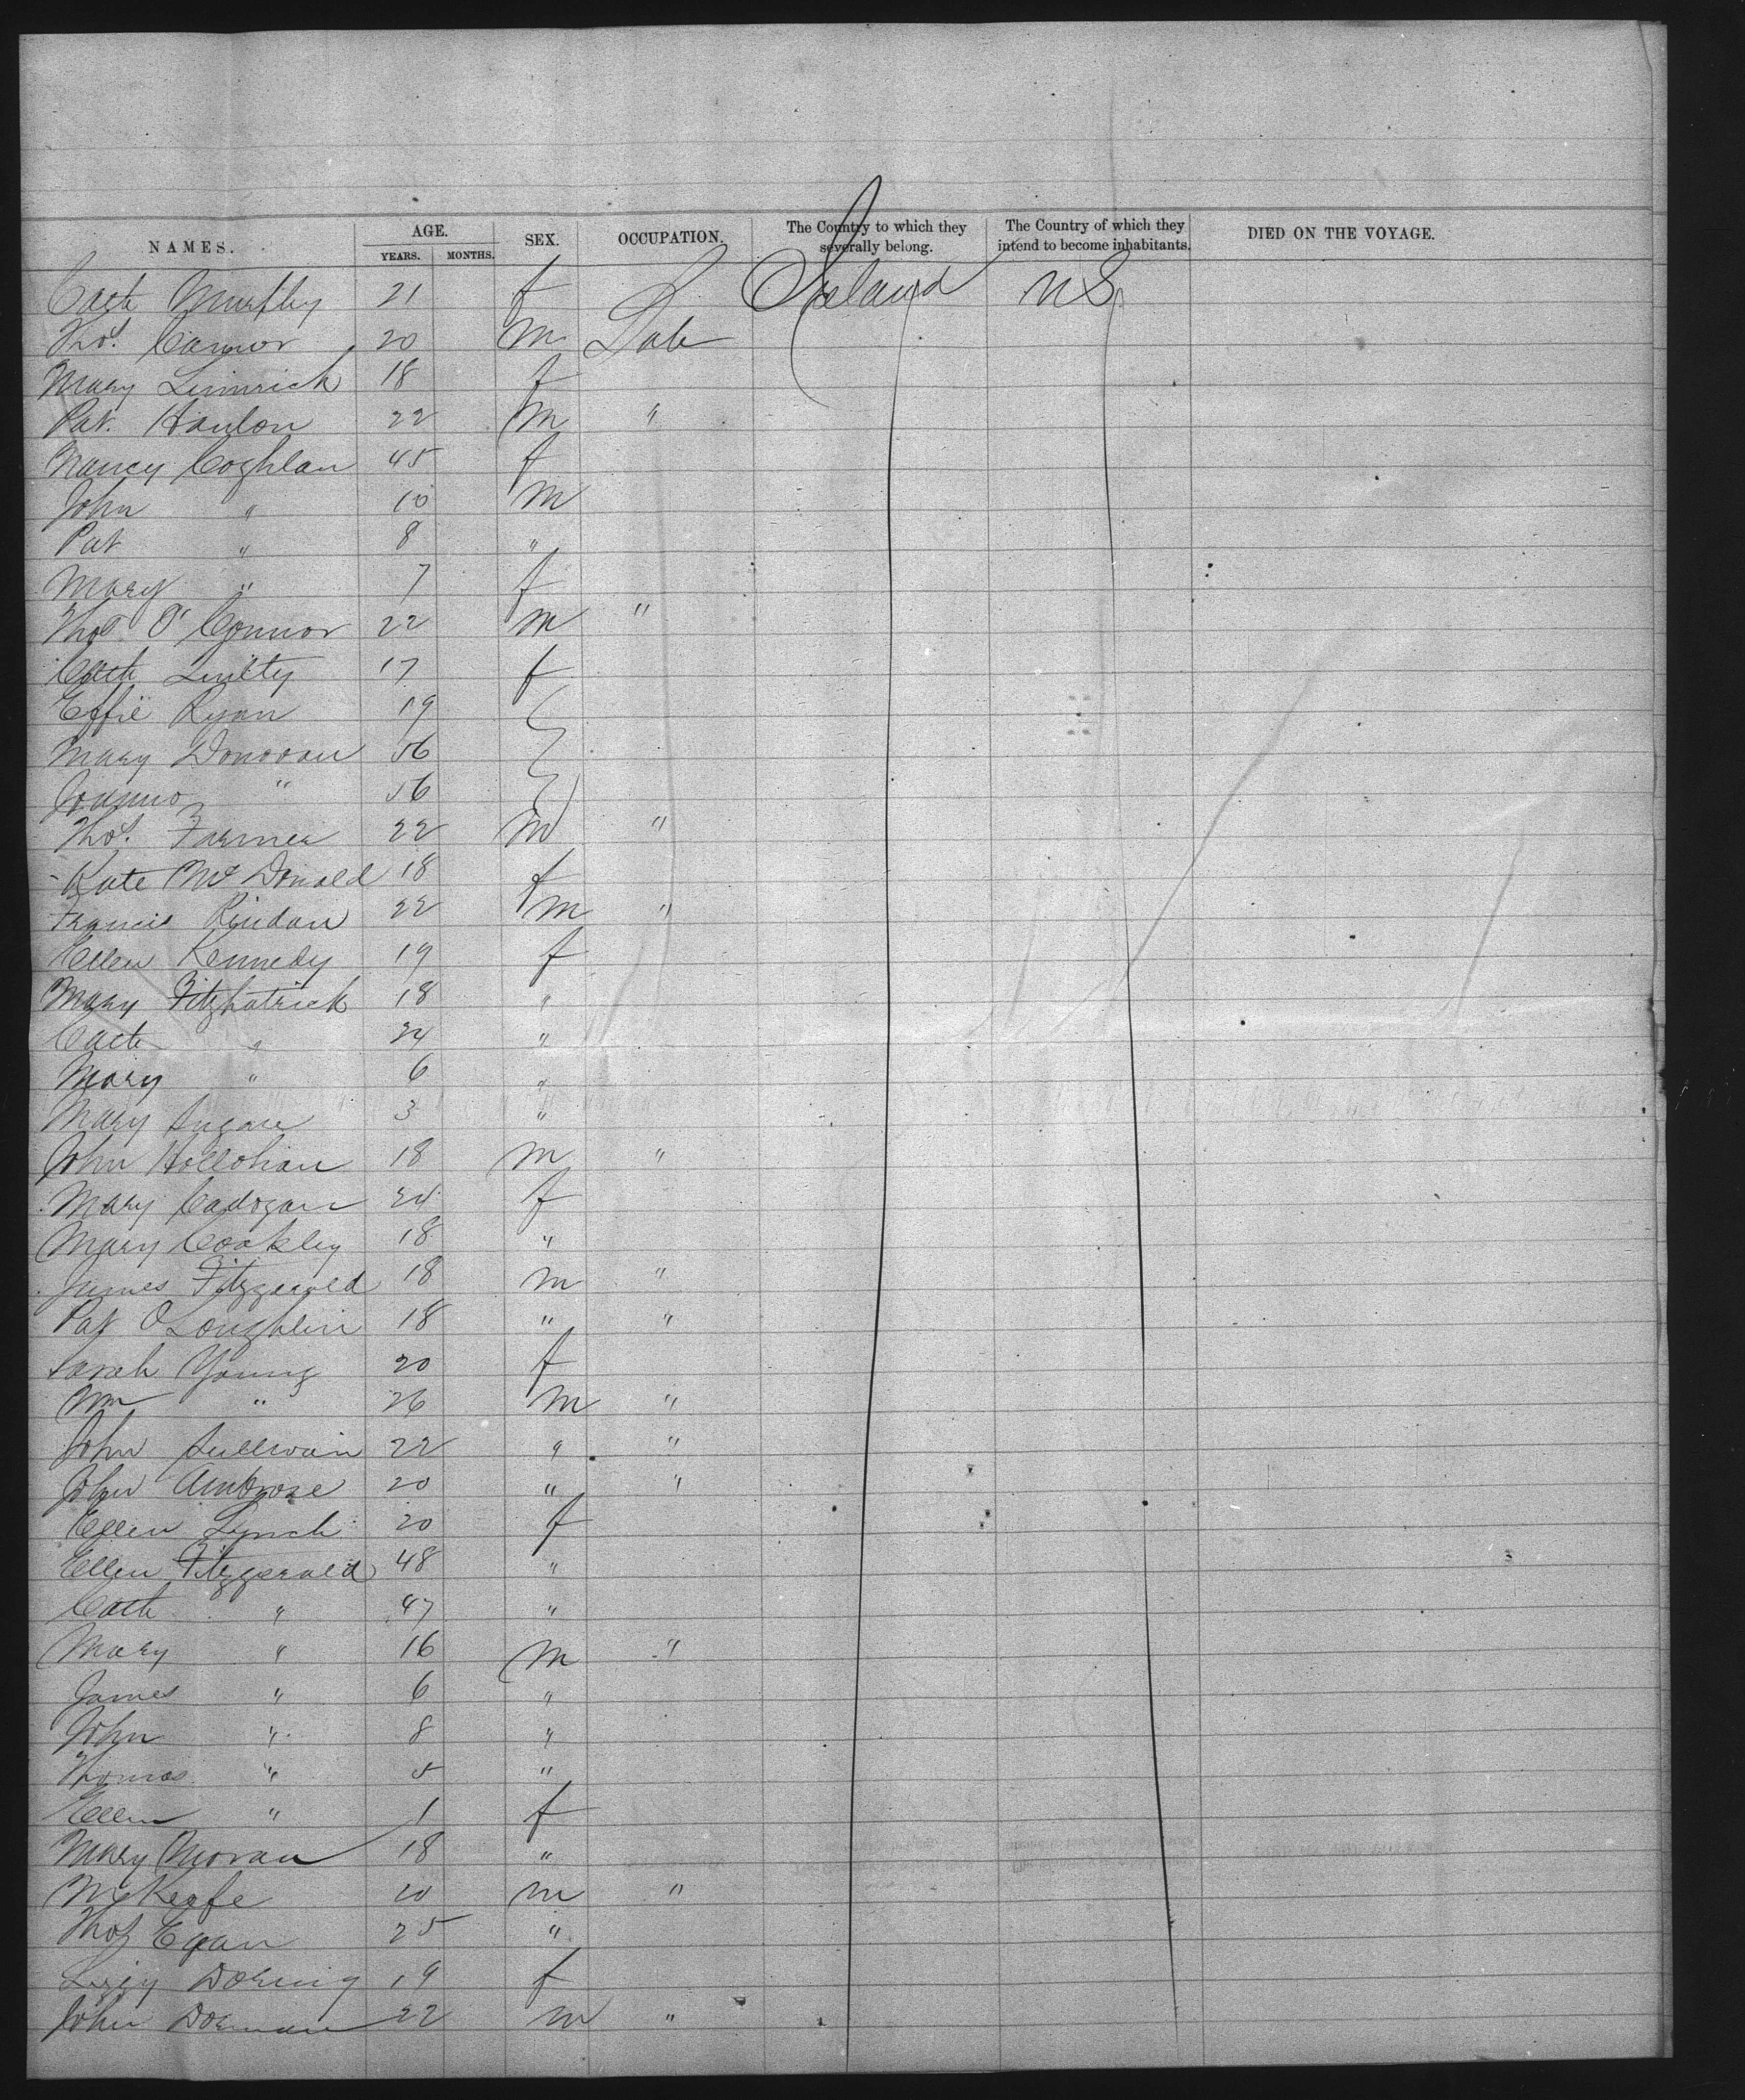 NAMES. AGE. YEARS. MONTHS. SEX. OCCUPATION. The Country to which they severally belong. The Country of which they intend to become inhabitants. DIED ON THE VOYAGE.
Cath Murphy 21 f Ireland US
Thos. Connor 20 m Lab
Mary Limrick 18 f
Pat. Hanlon 22 m "
Nancy Coghlan 45 f
John " 10 m
Pat " 8 "
Mary " 7 f
Thos O'Connor 22 m "
Cath Quilty 17 f
Effie Ryan 19
Mary Donovan 56
" 56
Thos. Farmer 22 m "
Kate McDonald 18 f
Francis Rindan 22 m "
Ellen Kennedy 19 f
Mary Fitzpatrick 18 "
Cath " 24 "
Mary " 6 "
Mary 3 "
John Hollohan 18 m "
Mary Cadogan 24 f
Mary Coakley 18 "
James Fitzgerald 18 m "
Pat O'Loughlin 18 " "
Sarah Young 20 f
Wm " 26 m "
John Sullivan 22 " "
John Ambrose 20 " "
Ellen Lynch 20 f
Ellen Fitzgerald 48 "
Cath " 47 "
Mary " 16 m "
James " 6 "
John " 8 "
Thomas " 5 "
Ellen " 1 f
Mary Moran 18 "
McKeafe 20 m "
Thos Egan 25 "
Lizzy Doring 19 f
John Dorman 22 m "